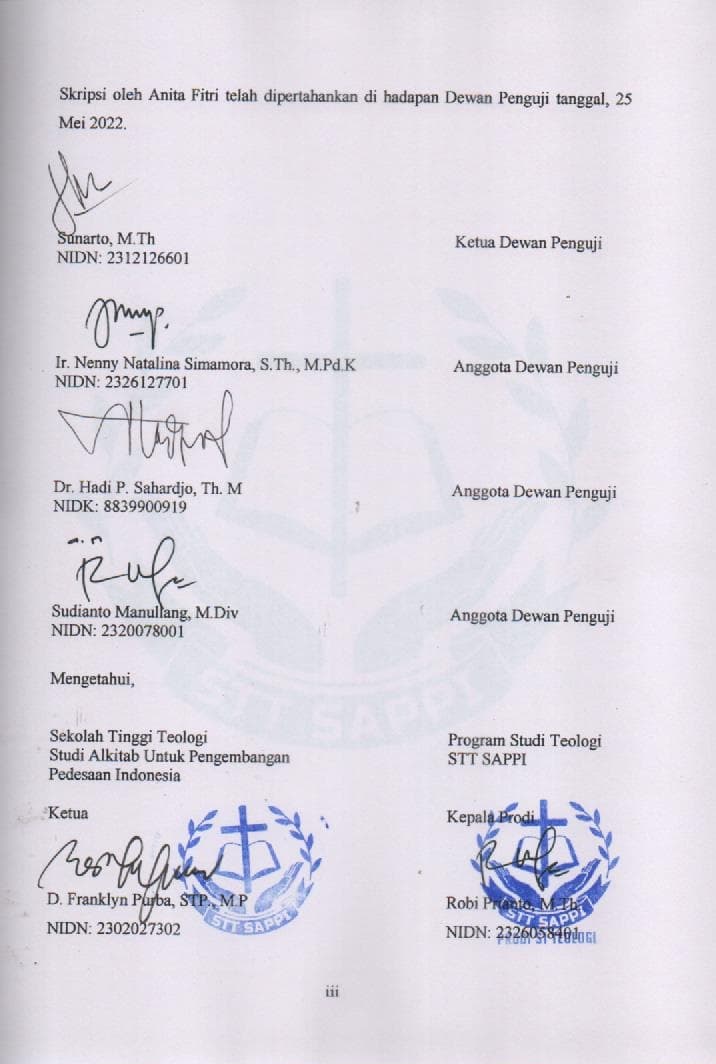 Skripsi oleh Anita Fitri telah dipertahankan di hadapan Dewan Penguji tanggal, 25
Mei 2022.
Sunarto, M.Th
Ketua Dewan Penguji
NIDN: 2312126601
Ir. Nenny Natalina Simamora, S.Th., M.Pd.K
Anggota Dewan Penguji
NIDN: 2326127701
Dr. Hadi P. Sahardjo, Th. M
Anggota Dewan Penguji
NIDK: 8839900919
a.n
Sudianto Manullang, M.Div
Anggota Dewan Penguji
NIDN: 2320078001
STT SAPPI
Mengetahui,
Sekolah Tinggi Teologi
Studi Alkitab Untuk Pengembangan
Pedesaan Indonesia
Program Studi Teologi
STT SAPPI
Ketua
Kepala Prodi
D. Franklyn Purba, STP., M.P
NIDN: 2302027302
STT SAPPI
Robi Prianto, M.Th
NIDN: 2326058401
STT SAPPI
PRODI S1 TEOLOGI
iii